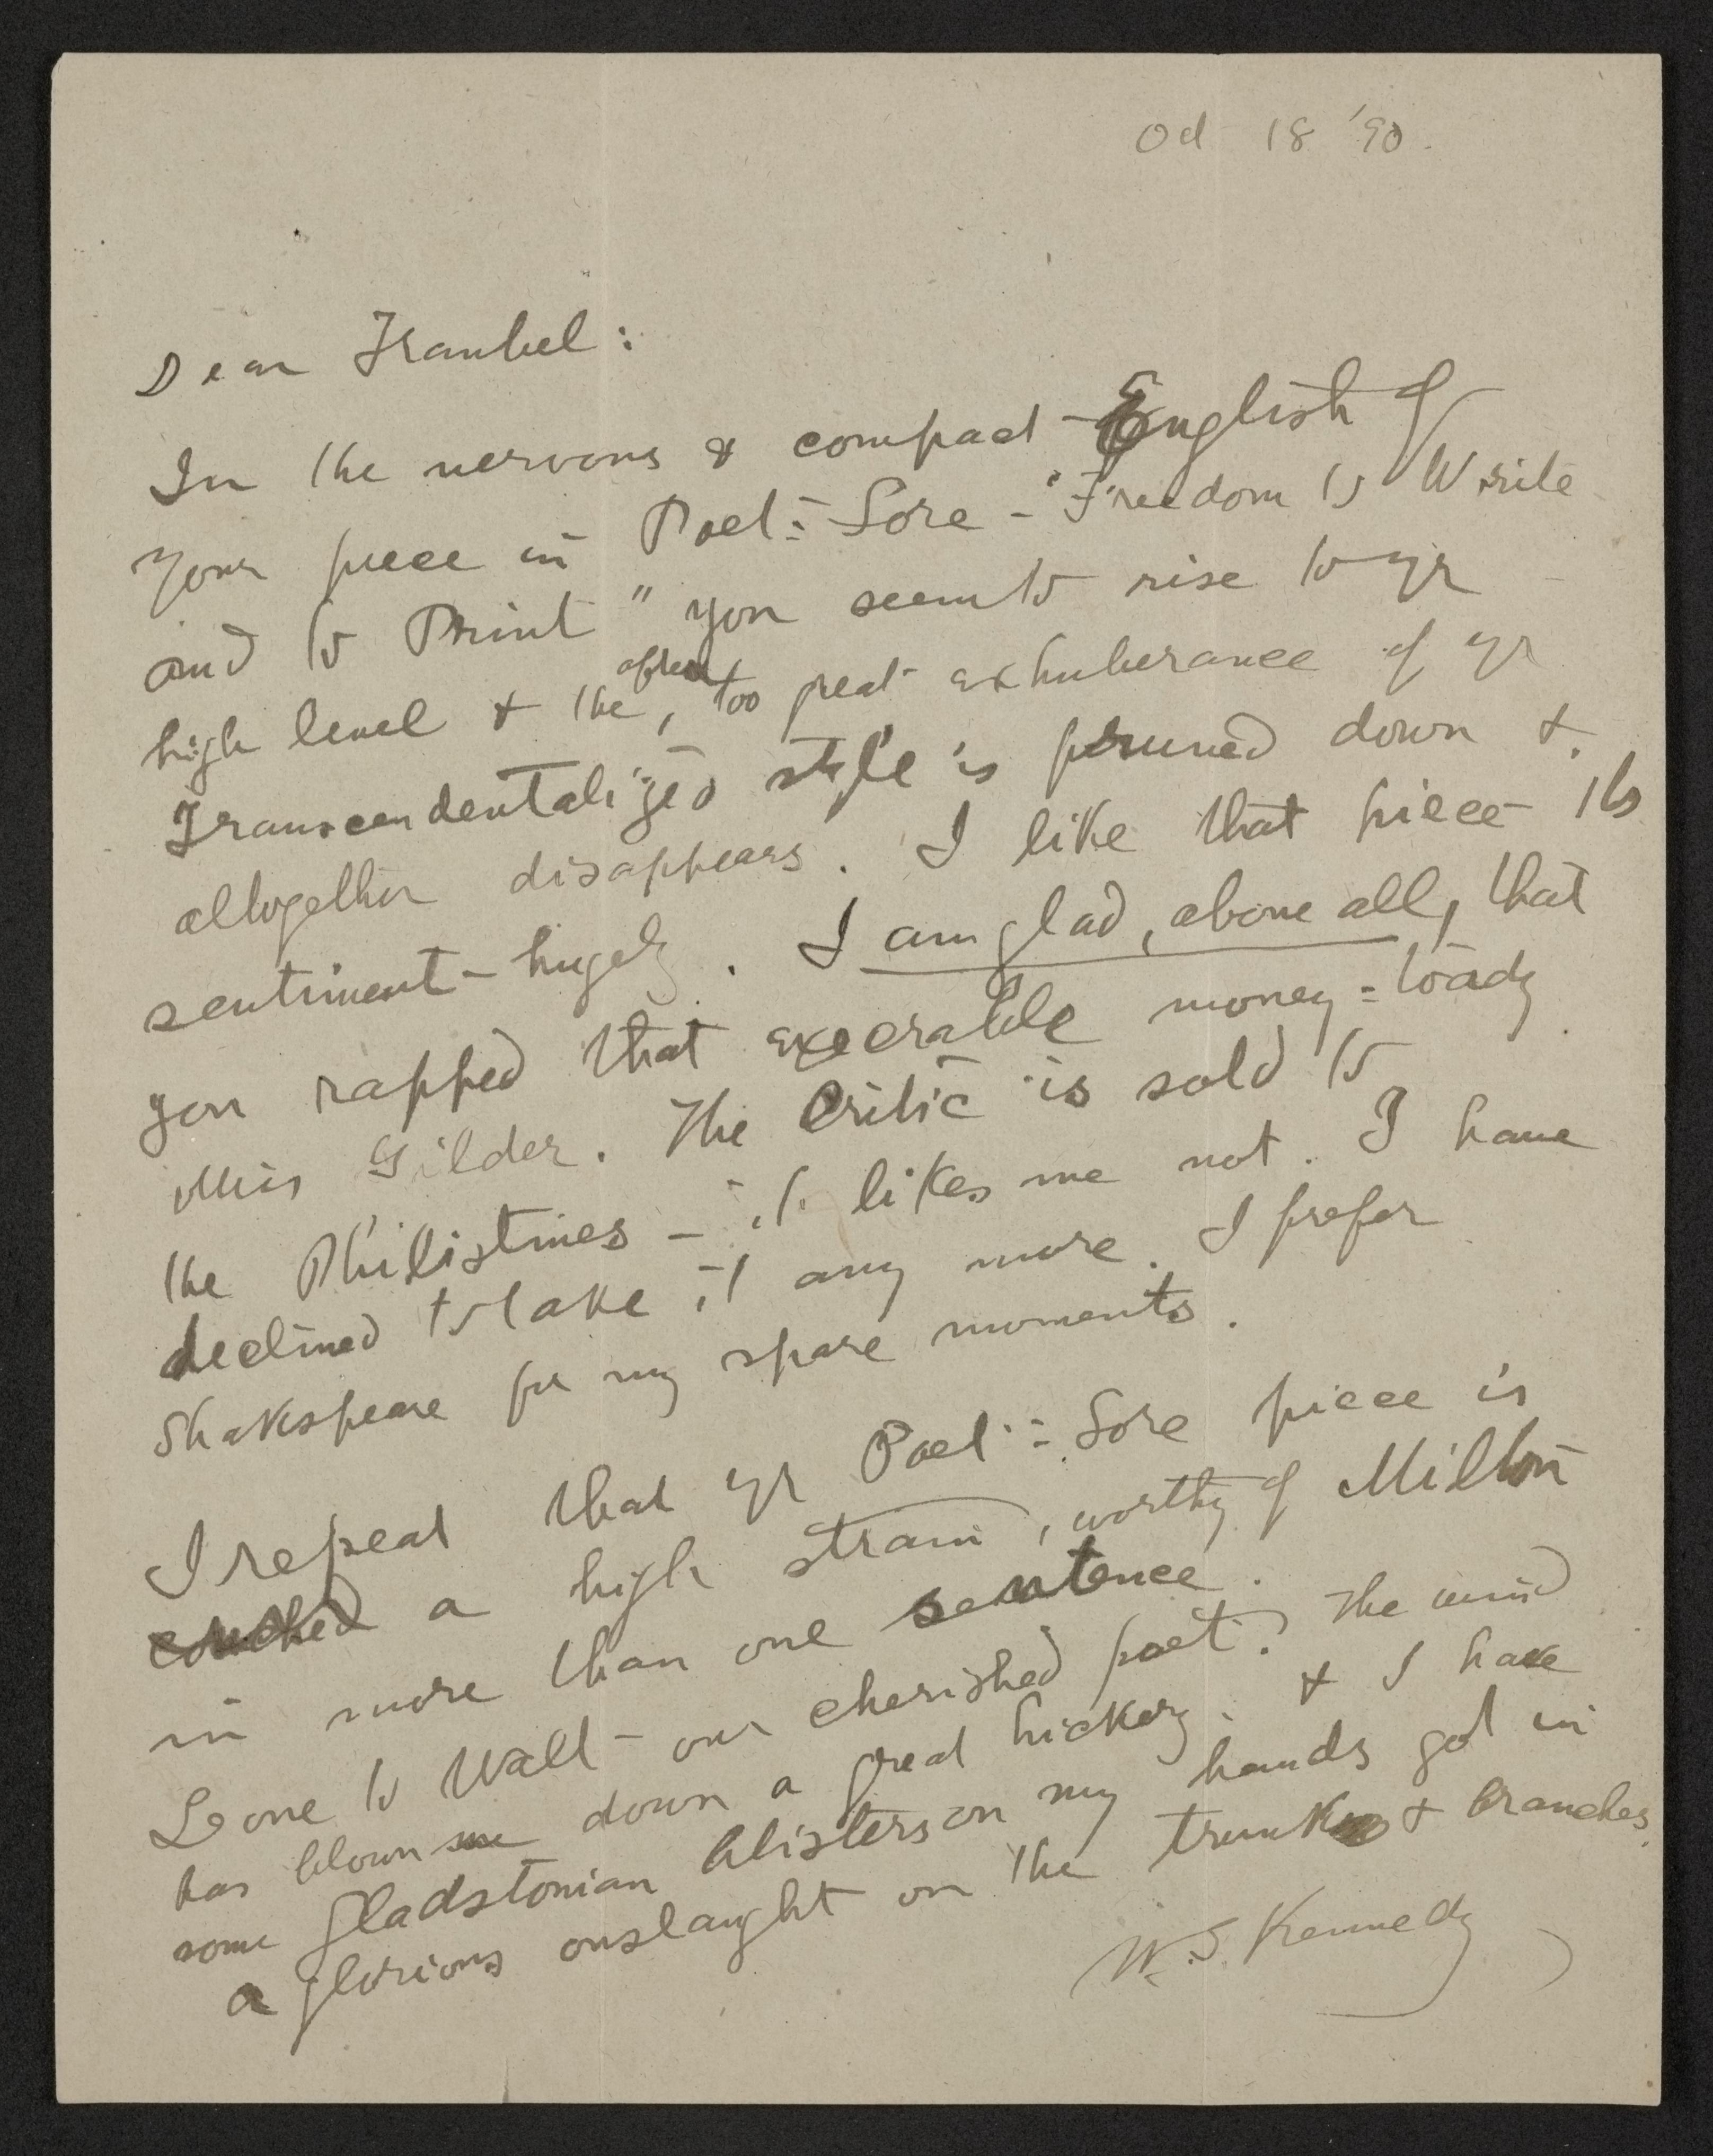 Oct 18 '90.
Dear Traubel:
In the nervous & compact English of
your piece in Poet-Lore - "Freedom to Write
and to Print" you seem to rise to yr
high level & the, often too great exhuberance of yr
Transcendentalized style is pruned down &
altogether disappears. I like that piece - its
sentiment - hugely. I am glad, above all, that
you rapped that execrable money-toady
Miss Gilder. The Critic is sold to
the Philistines - it likes me not. I have
declined to take it any more. I prefer
Shakspeare for my spare moments.
I repeat that yr Poet-Lore piece is
couched a high strain, worthy of Milton
in more than one sentence.
Love to Walt - our cherished poet. The wind
has blown me down a great hickory. & I have
some gladstonian blisters on my hands got in
a glorious onslaught on the trunk & branches.
W. S. Kennedy